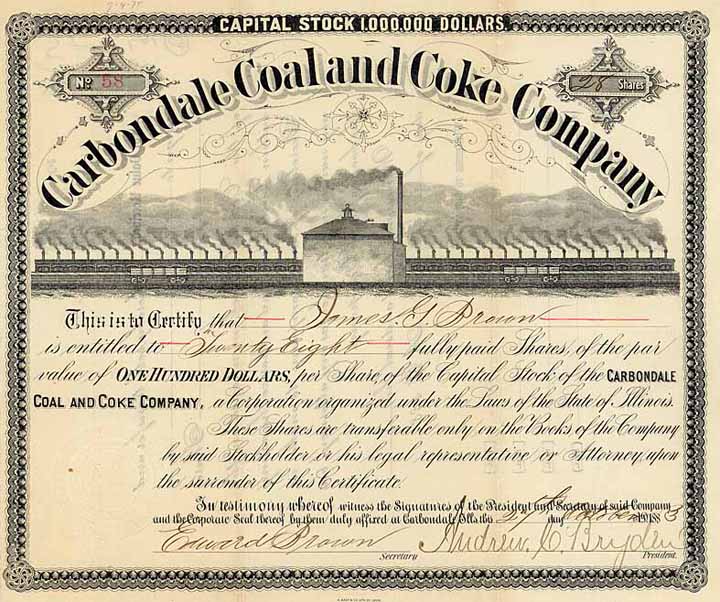 7-4-75
CAPITAL STOCK 1,000,000 DOLLARS.
No 58
28 Shares
Carbondale Coal and Coke Company
This is to Certify that James G. Brown
is entitled to Twenty Eight fully paid Shares, of the par
value of ONE HUNDRED DOLLARS, per Share, of the Capital Stock of the CARBONDALE
COAL AND COKE COMPANY, a Corporation organized under the Laws of the State of Illinois.
These Shares are transferable only on the Books of the Company
by said Stockholder or his legal representative or Attorney, upon
the surrender of this Certificate.
In testimony whereof witness the Signatures of the President and Secretary of said Company
and the Corporate Seal thereof by them duly affixed at Carbondale Ills this 27th day October 1883
Edward Brown Andrew C. Bryden
Secretary President.